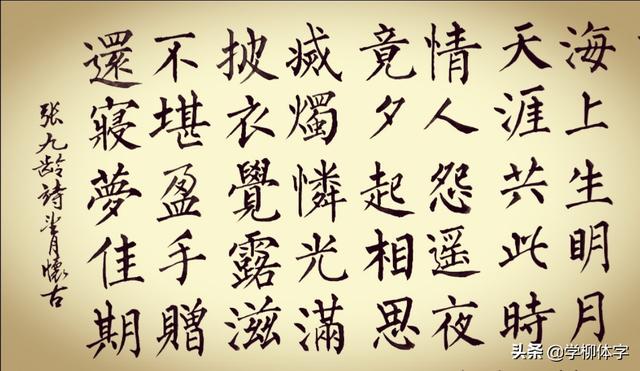 海上生明月
天涯共此時
情人怨遥夜
竟夕起相思
滅燭憐光滿
披衣覺露滋
不堪盈手贈
還寢夢佳期
张九龄詩懷古
头条 @学柳体字